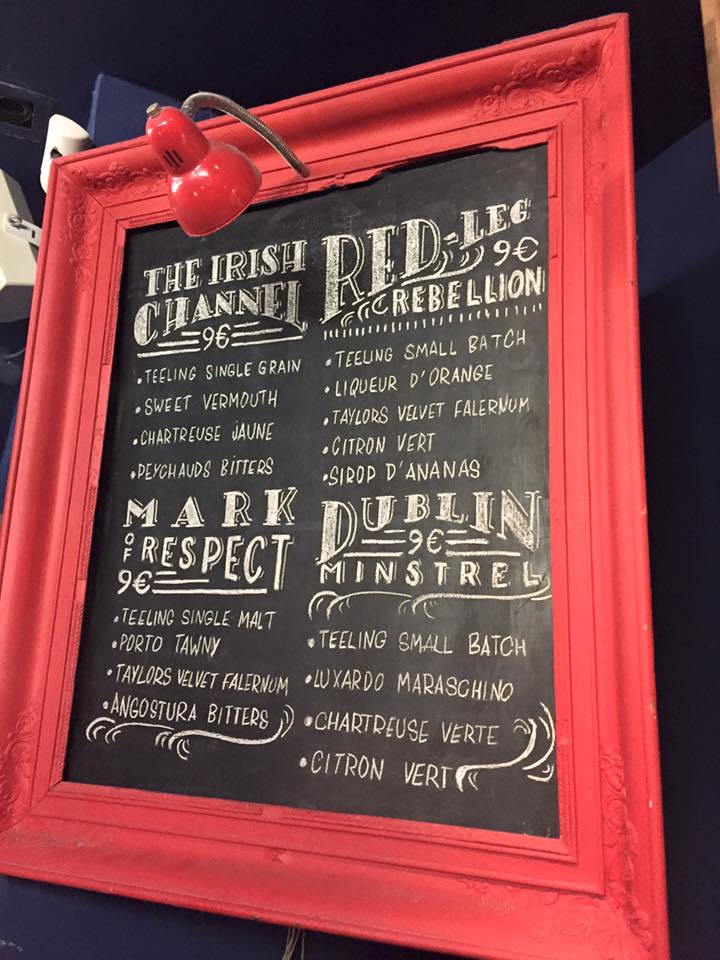 THE IRISH
CHANNEL
9€
• TEELING SINGLE GRAIN
• SWEET VERMOUTH
• CHARTREUSE JAUNE
• PEYCHAUDS BITTERS
RED-LEG
9€
REBELLION
• TEELING SMALL BATCH
• LIQUEUR D'ORANGE
• TAYLORS VELVET FALERNUM
• CITRON VERT
• SIROP D'ANANAS
MARK
OF RESPECT
9€
• TEELING SINGLE MALT
• PORTO TAWNY
• TAYLORS VELVET FALERNUM
• ANGOSTURA BITTERS
DUBLIN
9€
MINSTREL
• TEELING SMALL BATCH
• LUXARDO MARASCHINO
• CHARTREUSE VERTE
• CITRON VERT